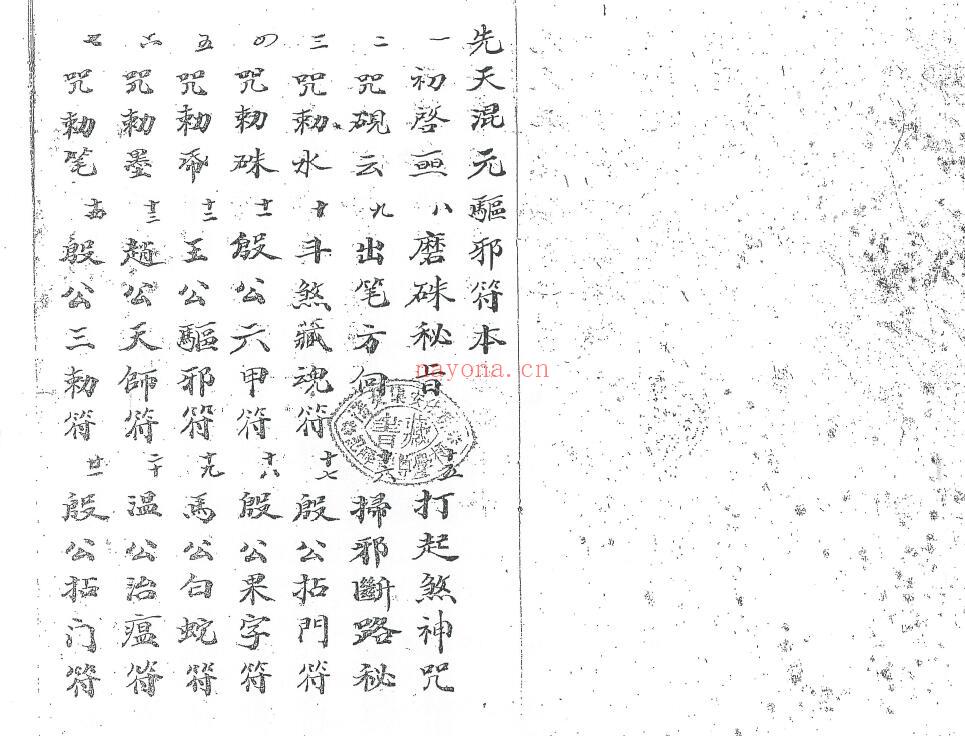 先天混元驅邪符本
一 初啓 八 磨硃秘旨 十五 打起煞神咒
二 咒硯云 九 出笔方向 十六 掃邪斷路秘
三 咒勅水 十 斗煞藏魂符 十七 殷公拈門符
四 咒勅硃 十一 殷公六甲符 十八 殷公果字符
五 咒勅 十二 王公驅邪符 十九 馬公白蛇符
六 咒勅墨 十三 趙公天師符 二十 温公治瘟符
七 咒勅笔 十四 殷公三勅符 廿一 殷公拈门符
nayona.cn
書藏